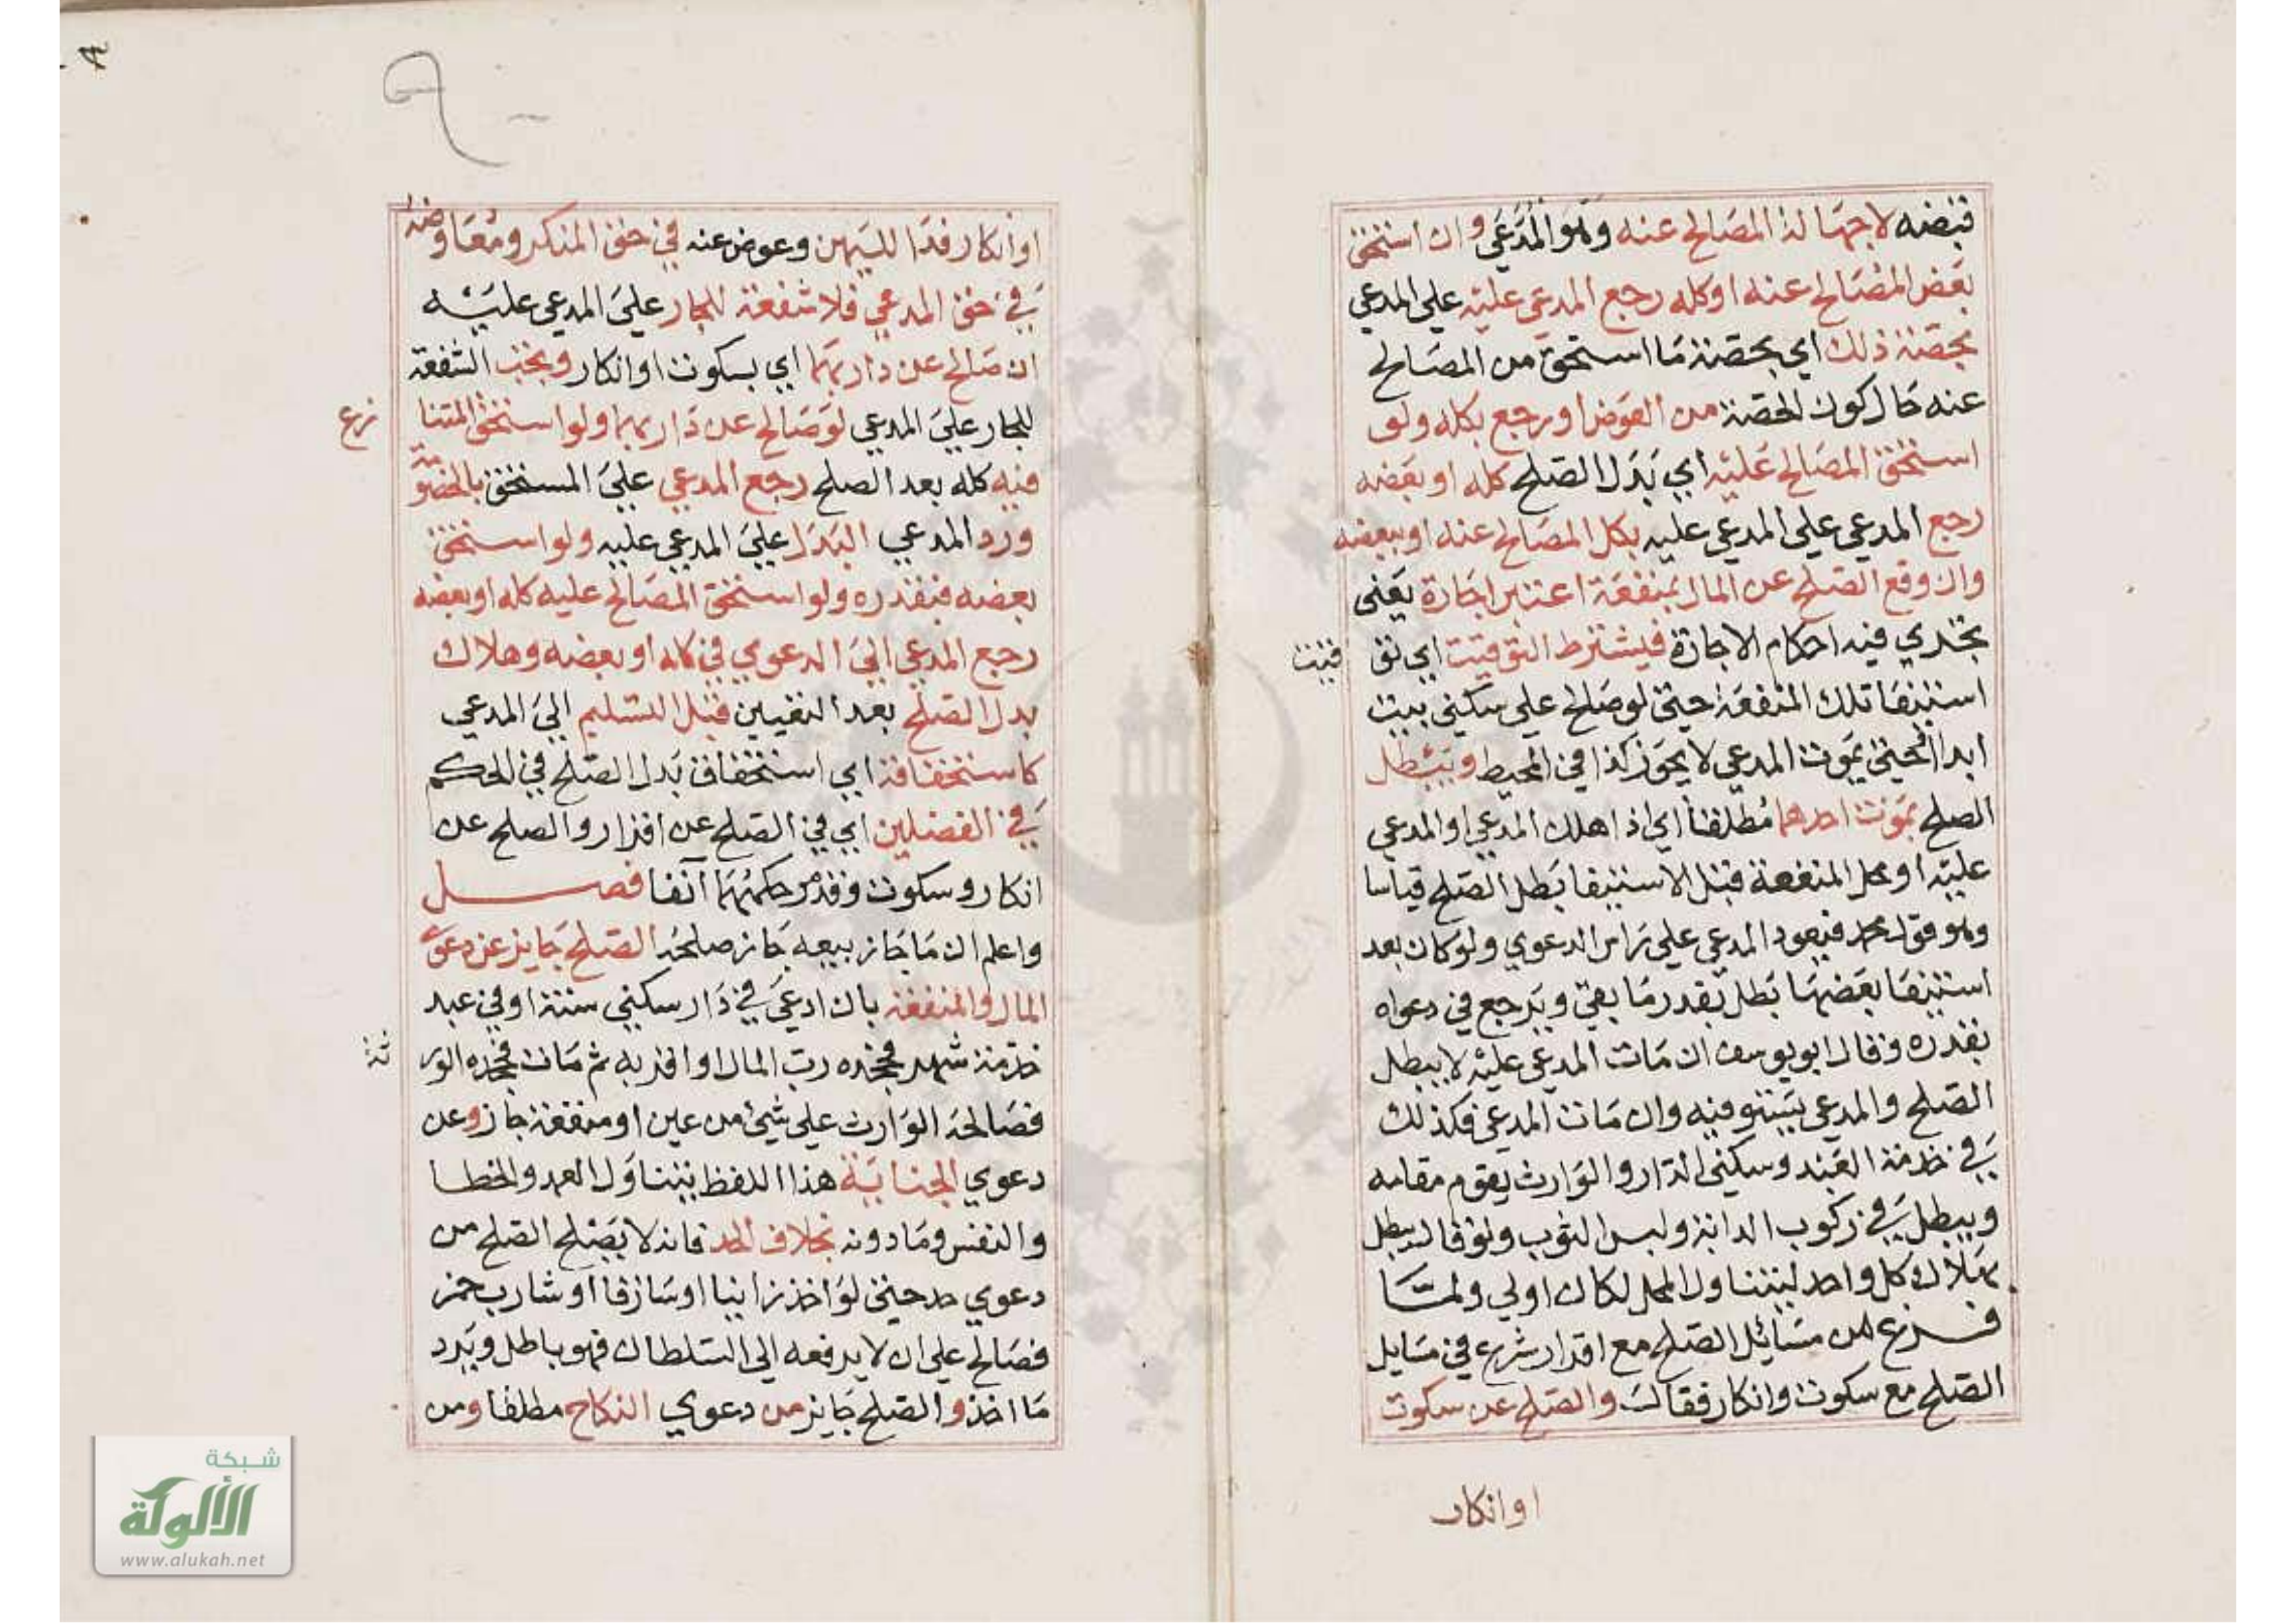 قبضه لا جهالة المصالح عنه وهو المدعي وان استحق
بعض المصالح عنه او كله رجع المدعى عليه على المدعي
بحصة ذلك اي بحصة ما استحق من المصالح
عنه حال كون الحصة من العوض او رجع بكله ولو
استحق المصالح عليه اي بدل الصلح كله او بعضه
رجع المدعي علي المدعي عليه بكل المصالح عنه او ببعضه
وان وقع الصلح عن المال بمنفعة اعتبر اجارة يعني
تجري فيه احكام الاجارة فيشترط التوقيت اي توقيت
استيفا تلك المنفعة حتى لو صالح علي سكني بيت
ابدا او حتى يموت المدعي لا يجوز كذا في المحيط ويبطل
الصلح بموت احدهما مطلقا اي اذا هلك المدعي او المدعي
عليه او محل المنفعة قبل الاستيفا بطل الصلح قياسا
وهو قول محمد فيعود المدعي علي راس الدعوي ولو كان بعد
استيفا بعضها بطل بقدر ما بقي ويرجع في دعواه
بقدره وقال ابو يوسف ان مات المدعي عليه لا يبطل
الصلح والمدعي يستوفيه وان مات المدعي فكذلك
في خدمة العبد وسكني الدار والوارث يقوم مقامه
ويبطل في ركوب الدابة ولبس الثوب ولو قال يبطل
بهلاك كل واحد ليتناول المحل لكان اولي ولما
فرغ من مسائل الصلح مع اقرار شرع في مسايل
الصلح مع سكوت وانكار فقال والصلح عن سكوت
او انكار
او انكار فدا لليمين وعوض عنه في حق المنكر ومعاوضة
في حق المدعي فلا شفعة للجار علي المدعي عليه
ان صالح عن دار بهما اي بسكوت او انكار ويجب الشفعة
للجار علي المدعي لو صالح عن دار بهما ولو استحق المتنازع
فيه كله بعد الصلح رجع المدعي علي المستحق بالخصومة
ورد المدعي البدل علي المدعي عليه ولو استحق
بعضه فبقدره ولو استحق المصالح عليه كله او بعضه
رجع المدعي الي الدعوي في كله او بعضه وهلاك
بدل الصلح بعد التعيين قبل التسليم الي المدعي
كاستحقاقه اي استحقاق بدل الصلح في الحكم
في الفصلين اي في الصلح عن اقرار والصلح عن
انكار وسكوت وقد مر حكمهما آنفا فصل
واعلم ان ما جاز بيعه جاز صلحه الصلح جايز عن دعوي
المال والمنفعة بان ادعي في دار سكني سنة او في عبد
خدمة شهر فجحده رب المال او اقر به ثم مات فجحده الورثة
فصالحه الوارث علي شيئ من عين او منفعة جاز وعن
دعوي الجناية هذا اللفظ يتناول العمد والخطا
والنفس وما دونه بخلاف الحد فانه لا يصلح الصلح من
دعوي حد حتى لو اخذ زانيا او سارقا او شارب خمر
فصالح علي ان لا يرفعه الي السلطان فهو باطل ويرد
ما اخذ والصلح جايز من دعوي النكاح مطلقا ومن
شبكة
الألوكة
www.alukah.net